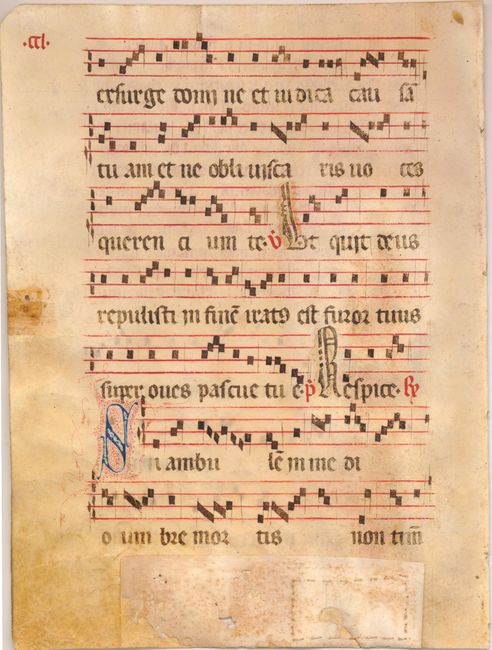 ·ccl·
exsurge domi ne et iudica cau sā
tu am et ne obli uisca ris uo ces
queren ci um te· v̄ Ut quit deus
repulisti in finē irat9 est furor tuus
super oues pascue tu e· p̄ Respice· ℟
Si ambu lē in me di
o um bre mor tis non tim̄